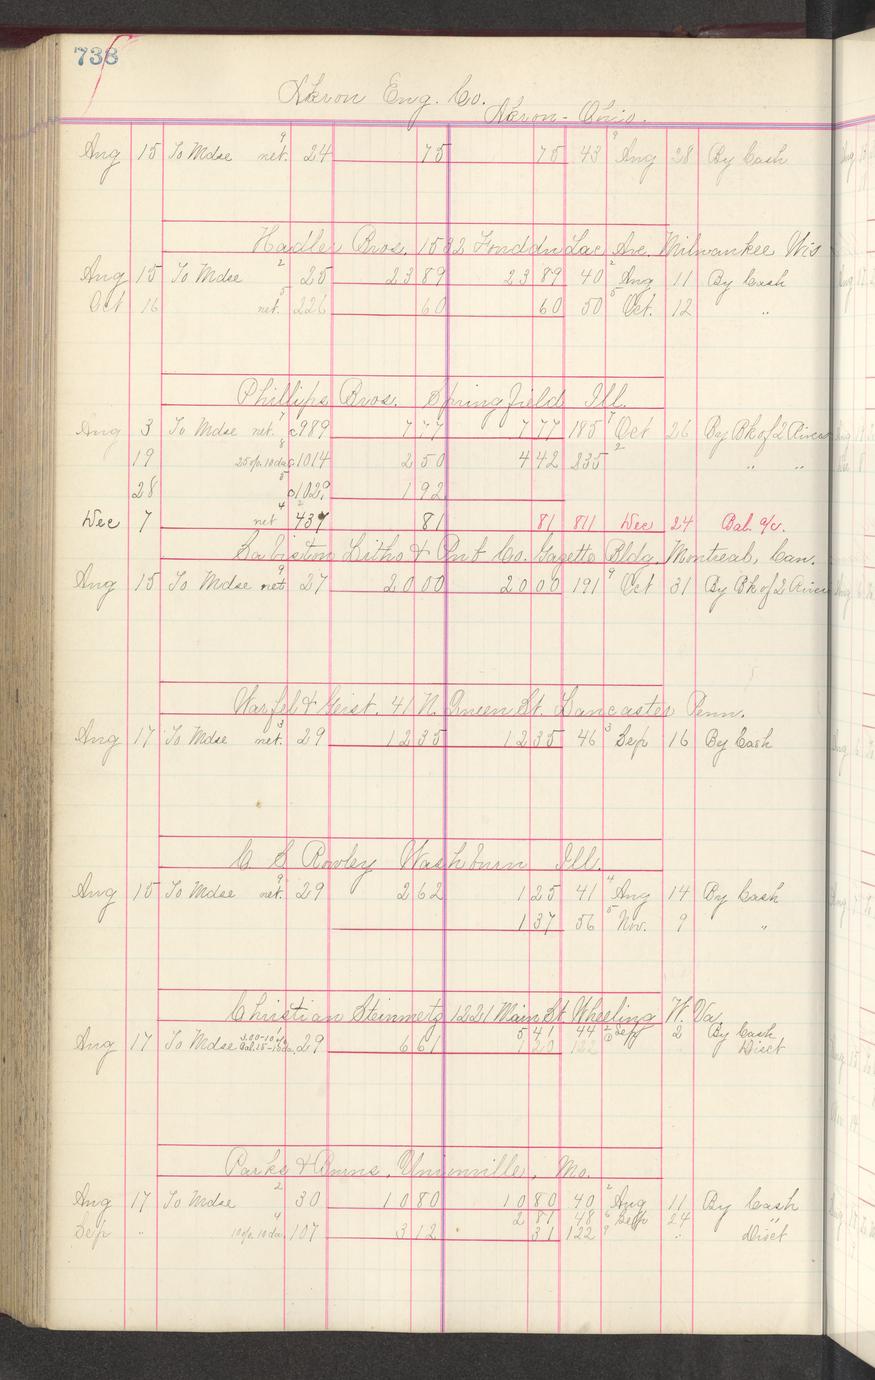 738
Akron Eng. Co.
Akron - Ohio.
Aug 15 To Mdse net. 9 24 75 75 43 9 Aug 28 By Cash
Hadler Bros. 1532 Fond du Lac Ave. Milwaukee Wis
Aug 15 To Mdse 2 25 23 89 23 89 40 2 Aug 11 By Cash
Oct 16 net. 5 226 60 60 50 5 Oct. 12 "
Phillips Bros. Springfield Ill.
Aug 3 To Mdse net. 7 c989 7 77 7 77 185 7 Oct 26 By Bk of 2 Rivers
19 25% 10 da 8 c1014 2 50 4 42 235 2 " "
28 5 c1029 1 92
Dec 7 net 4 437 81 81 811 Dec 24 Bal. a/c.
Sabiston Litho & Pub Co. Gazette Bldg. Montreal, Can.
Aug 15 To Mdse net 9 27 20 00 20 00 191 9 Oct 31 By Bk of 2 Rivers
Warfel & Geist. 41 N. Queen St. Lancaster Penn.
Aug 17 To Mdse net. 3 29 12 35 12 35 46 3 Sep 16 By Cash
C S Rowley Washburn Ill.
Aug 15 To Mdse net. 9 29 2 62 1 25 41 4 Aug 14 By Cash
1 37 56 5 Nov. 9 "
Christian Steinmetz 1221 Main St Wheeling W. Va
5 41 44 2 Sep 2 By Cash
Aug 17 To Mdse 29 6 61 1 20 122 Disct
Parks & Burns, Unionville, Mo.
Aug 17 To Mdse 2 30 10 80 10 80 40 2 Aug 11 By Cash
2 81 48 6 Sep 24 "
Sep " 10% 10 da. 4 107 3 12 31 122 9 " Disct